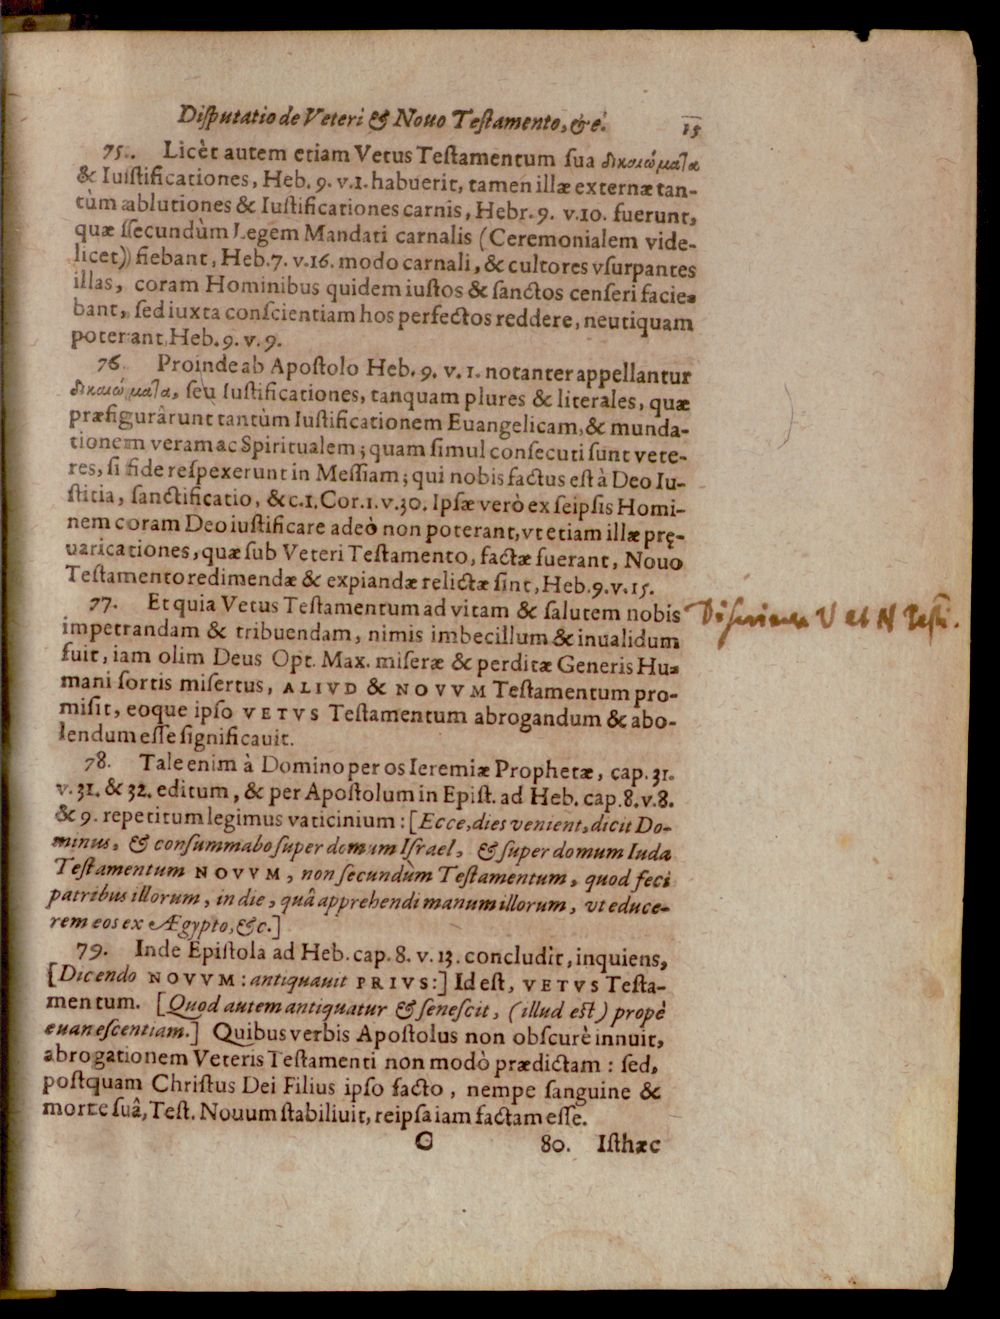 Disputatio de Veteri & Nouo Testamento, &c. 15
75. Licèt autem etiam Vetus Testamentum sua δικαιώματα
& Iustificationes, Heb. 9. v.1. habuerit, tamen illæ externæ tan-
tùm ablutiones & Iustificationes carnis, Hebr. 9. v.10. fuerunt,
quæ secundùm Legem Mandati carnalis (Ceremonialem vide-
licet) fiebant, Heb.7. v.16. modo carnali, & cultores vsurpantes
illas, coram Hominibus quidem iustos & sanctos censeri facie-
bant, sed iuxta conscientiam hos perfectos reddere, neutiquam
poterant, Heb. 9. v. 9.
76. Proinde ab Apostolo Heb. 9. v. 1. notanter appellantur
δικαιώματα, seu Iustificationes, tanquam plures & literales, quæ
præfigurârunt tantùm Iustificationem Euangelicam, & munda-
tionem veram ac Spiritualem; quam simul consecuti sunt vete-
res, si fide respexerunt in Messiam; qui nobis factus est à Deo Iu-
stitia, sanctificatio, &c.1.Cor.1.v.30. Ipsæ verò ex seipsis Homi-
nem coram Deo iustificare adeò non poterant, vt etiam illæ prę-
uaricationes, quæ sub Veteri Testamento, factæ fuerant, Nouo
Testamento redimendæ & expiandæ relictæ sint, Heb.9.v.15.
77. Et quia Vetus Testamentum ad vitam & salutem nobis
impetrandam & tribuendam, nimis imbecillum & inualidum
fuit, iam olim Deus Opt. Max. miseræ & perditæ Generis Hu-
mani sortis misertus, ALIVD & NOVVM Testamentum pro-
misit, eoque ipso VETVS Testamentum abrogandum & abo-
lendum esse significauit.
78. Tale enim à Domino per os Ieremiæ Prophetæ, cap. 31.
v. 31. & 32. editum, & per Apostolum in Epist. ad Heb. cap.8.v.8.
& 9. repetitum legimus vaticinium: [Ecce, dies venient, dicit Do-
minus, & consummabo super domum Israel, & super domum Iuda
Testamentum NOVVM, non secundùm Testamentum, quod feci
patribus illorum, in die, quâ apprehendi manum illorum, vt educe-
rem eos ex Ægypto, &c.]
79. Inde Epistola ad Heb. cap. 8. v. 13. concludit, inquiens,
[Dicendo NOVVM: antiquauit PRIVS:] Id est, VETVS Testa-
mentum. [Quod autem antiquatur & senescit, (illud est) propè
euanescentiam.] Quibus verbis Apostolus non obscurè innuit,
abrogationem Veteris Testamenti non modò prædictam: sed,
postquam Christus Dei Filius ipso facto, nempe sanguine &
morte suâ, Test. Nouum stabiliuit, reipsa iam factam esse.
C 80. Isthæc
Discrimen V et N Testi.